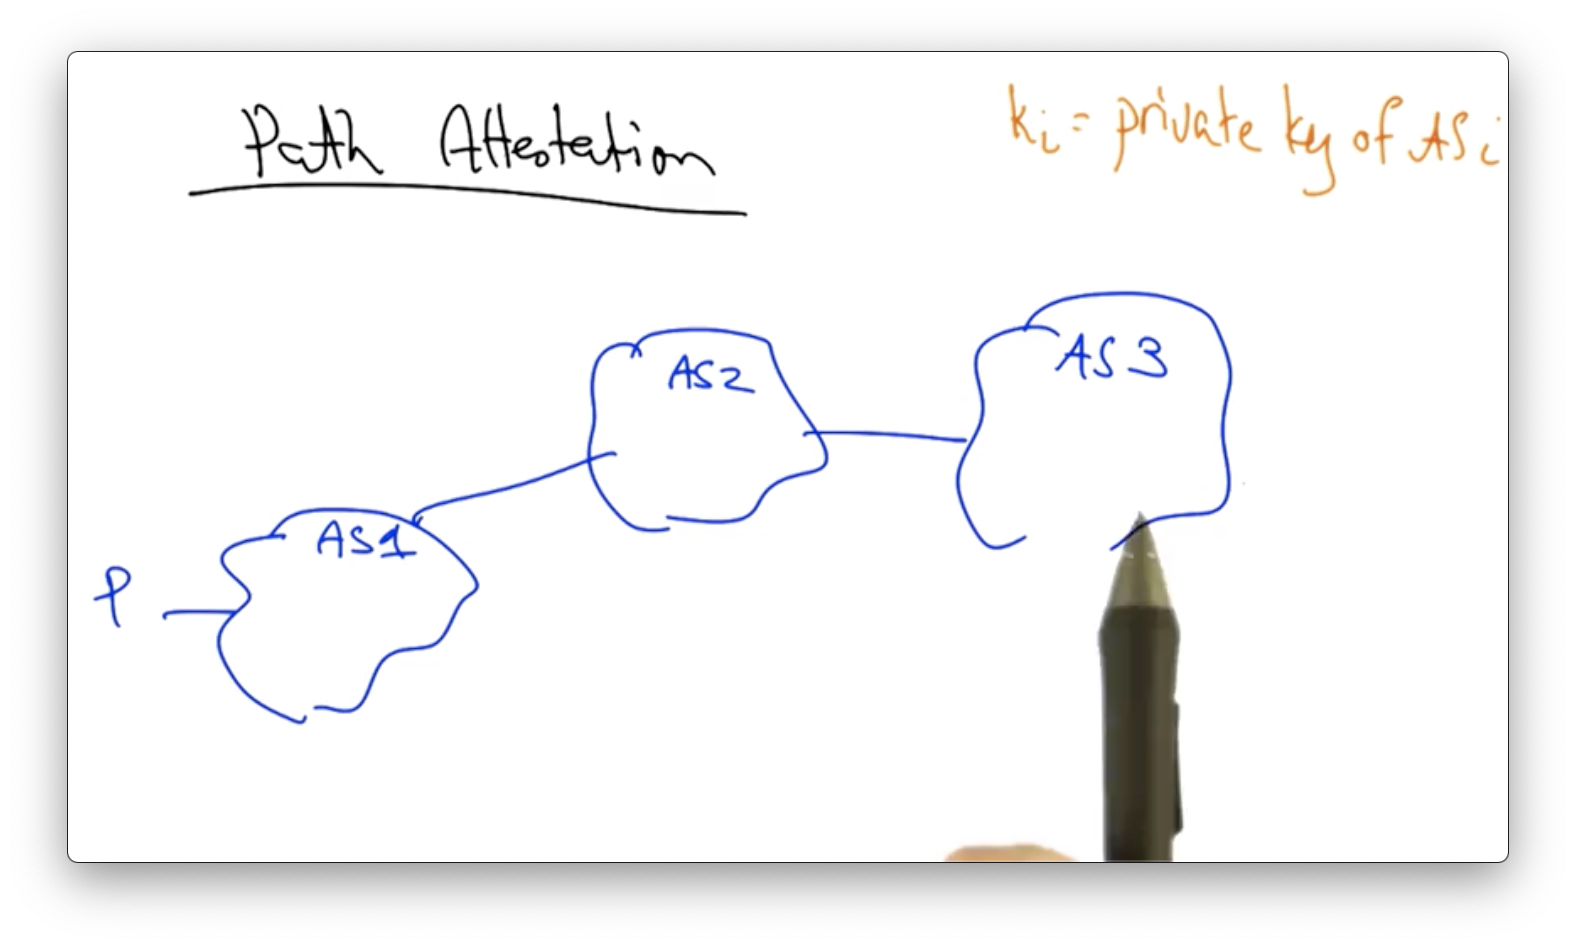 Path Attestation
ki = private key of ASi
AS3
AS2
AS1
P